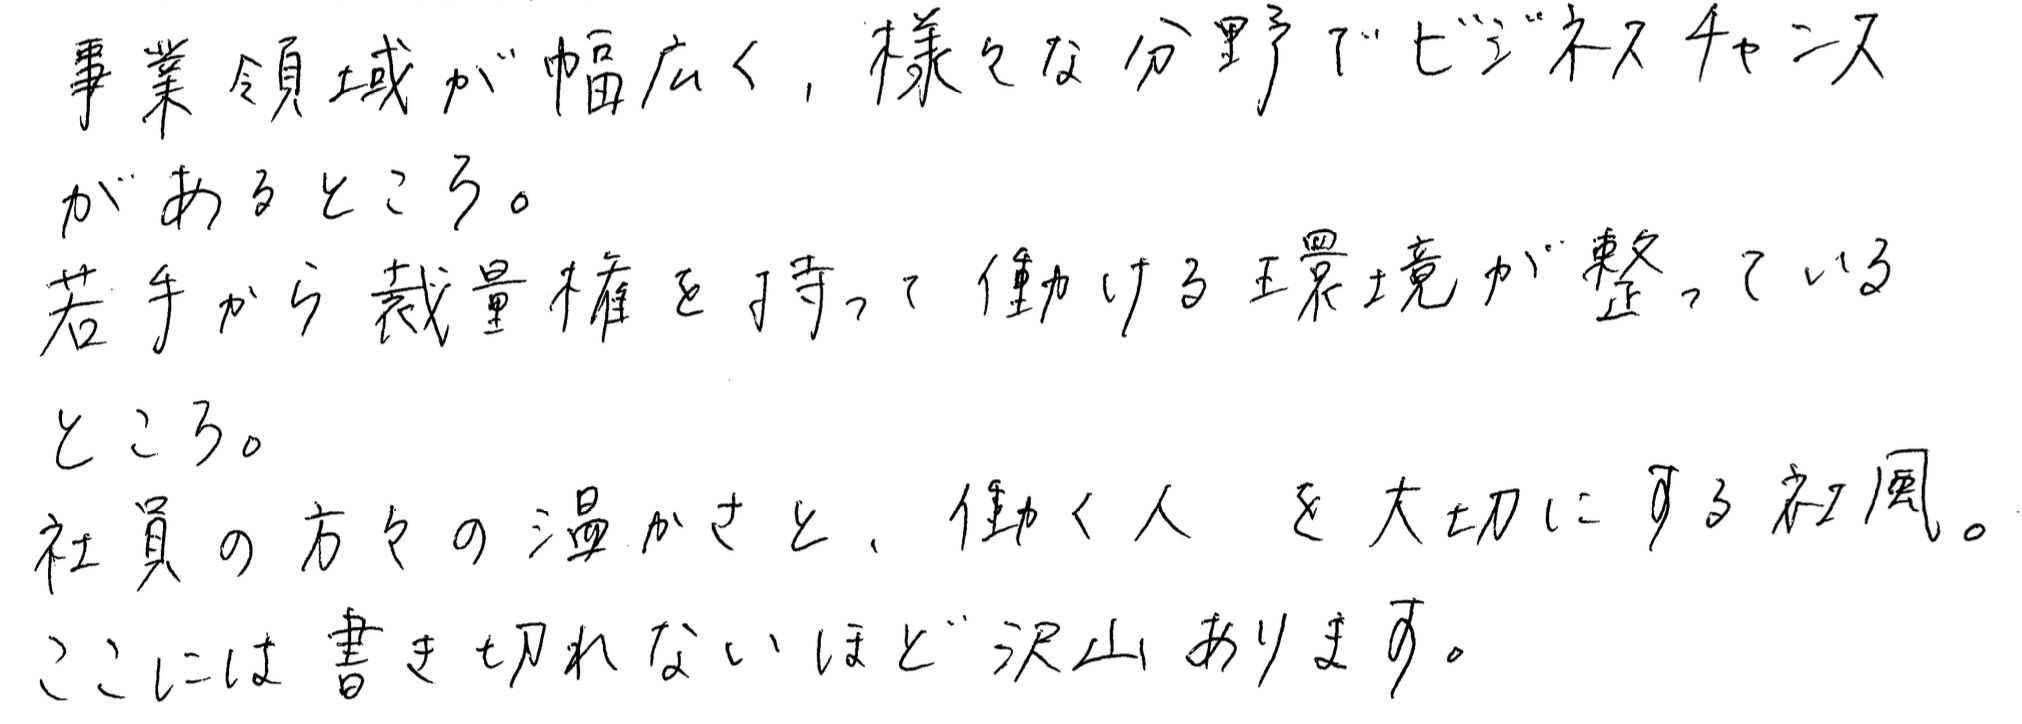 事業領域が幅広く、様々な分野でビジネスチャンス
があるところ。
若手から裁量権を持って働ける環境が整っている
ところ。
社員の方々の温かさと、働く人を大切にする社風。
ここには書き切れないほど沢山あります。